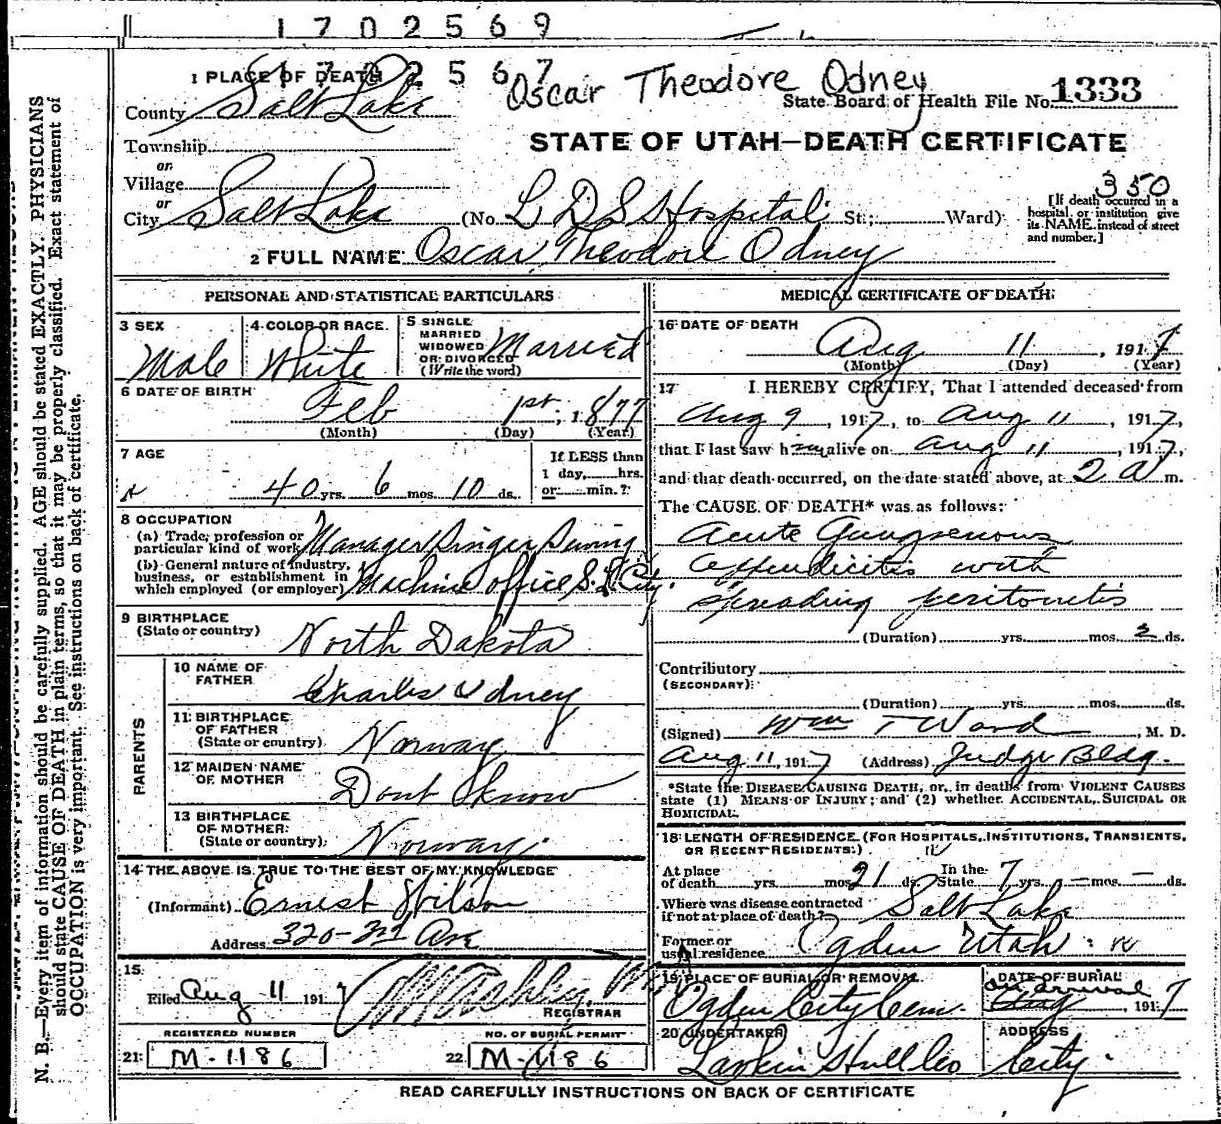 1702569
1 PLACE OF DEATH 1702567 Oscar Theodore Odney
State Board of Health File No. 1333
County Salt Lake
STATE OF UTAH—DEATH CERTIFICATE
Township
or
Village
or
350
City Salt Lake (No. L D S Hospital St.; Ward)
[If death occurred in a hospital or institution give its NAME instead of street and number.]
2 FULL NAME Oscar Theodore Odney
PERSONAL AND STATISTICAL PARTICULARS
3 SEX Male
4 COLOR OR RACE White
5 SINGLE MARRIED WIDOWED OR DIVORCED (Write the word) Married
6 DATE OF BIRTH Feb 1st, 1877
(Month) (Day) (Year)
7 AGE 40 yrs. 6 mos. 10 ds.
If LESS than 1 day, hrs. or min.?
8 OCCUPATION
(a) Trade, profession or particular kind of work Manager Singer Sewing
(b) General nature of industry, business, or establishment in which employed (or employer) Machine office S. L. City.
9 BIRTHPLACE (State or country) North Dakota
PARENTS
10 NAME OF FATHER Charles Odney
11 BIRTHPLACE OF FATHER (State or country) Norway
12 MAIDEN NAME OF MOTHER Dont Know
13 BIRTHPLACE OF MOTHER (State or country) Norway.
14 THE ABOVE IS TRUE TO THE BEST OF MY KNOWLEDGE
(Informant) Ernest Wilson
Address 320-2nd Ave
15
Filed Aug 11 1917
REGISTRAR
REGISTERED NUMBER NO. OF BURIAL PERMIT
21 M-1186 22 M-1186
MEDICAL CERTIFICATE OF DEATH
16 DATE OF DEATH
Aug 11, 1917
(Month) (Day) (Year)
17 I HEREBY CERTIFY, That I attended deceased from
Aug 9, 1917, to Aug 11, 1917,
that I last saw him alive on Aug 11, 1917,
and that death occurred, on the date stated above, at 2 a m.
The CAUSE OF DEATH* was as follows:
Acute Gangrenous
appendicitis with
spreading peritonitis
(Duration) yrs. mos. 2 ds.
Contributory
(SECONDARY)
(Duration) yrs. mos. ds.
(Signed) Wm T Ward, M. D.
Aug 11, 1917 (Address) Judge Bldg.
*State the DISEASE CAUSING DEATH, or, in deaths from VIOLENT CAUSES
state (1) MEANS OF INJURY; and (2) whether ACCIDENTAL, SUICIDAL OR
HOMICIDAL.
18 LENGTH OF RESIDENCE (FOR HOSPITALS, INSTITUTIONS, TRANSIENTS,
OR RECENT RESIDENTS.)
At place of death yrs. mos. 21 ds. In the State 7 yrs. - mos. - ds.
Where was disease contracted if not at place of death? Salt Lake
Former or usual residence Ogden Utah
19 PLACE OF BURIAL OR REMOVAL Ogden City Cem.
DATE OF BURIAL on arrival Aug, 1917
20 UNDERTAKER Larkin Hull Co
ADDRESS City.
READ CAREFULLY INSTRUCTIONS ON BACK OF CERTIFICATE
N. B.—Every item of information should be carefully supplied. AGE should be stated EXACTLY. PHYSICIANS
should state CAUSE OF DEATH in plain terms, so that it may be properly classified. Exact statement of
OCCUPATION is very important. See instructions on back of certificate.